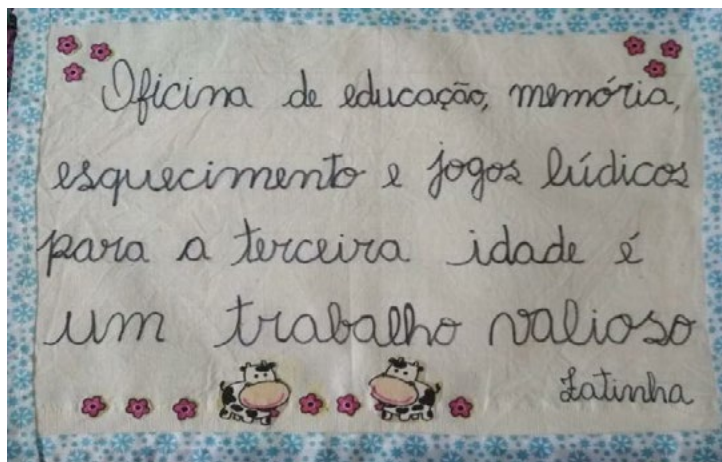 Oficina de educação, memória,
esquecimento e jogos lúdicos
para a terceira idade é
um trabalho valioso
Zatinha